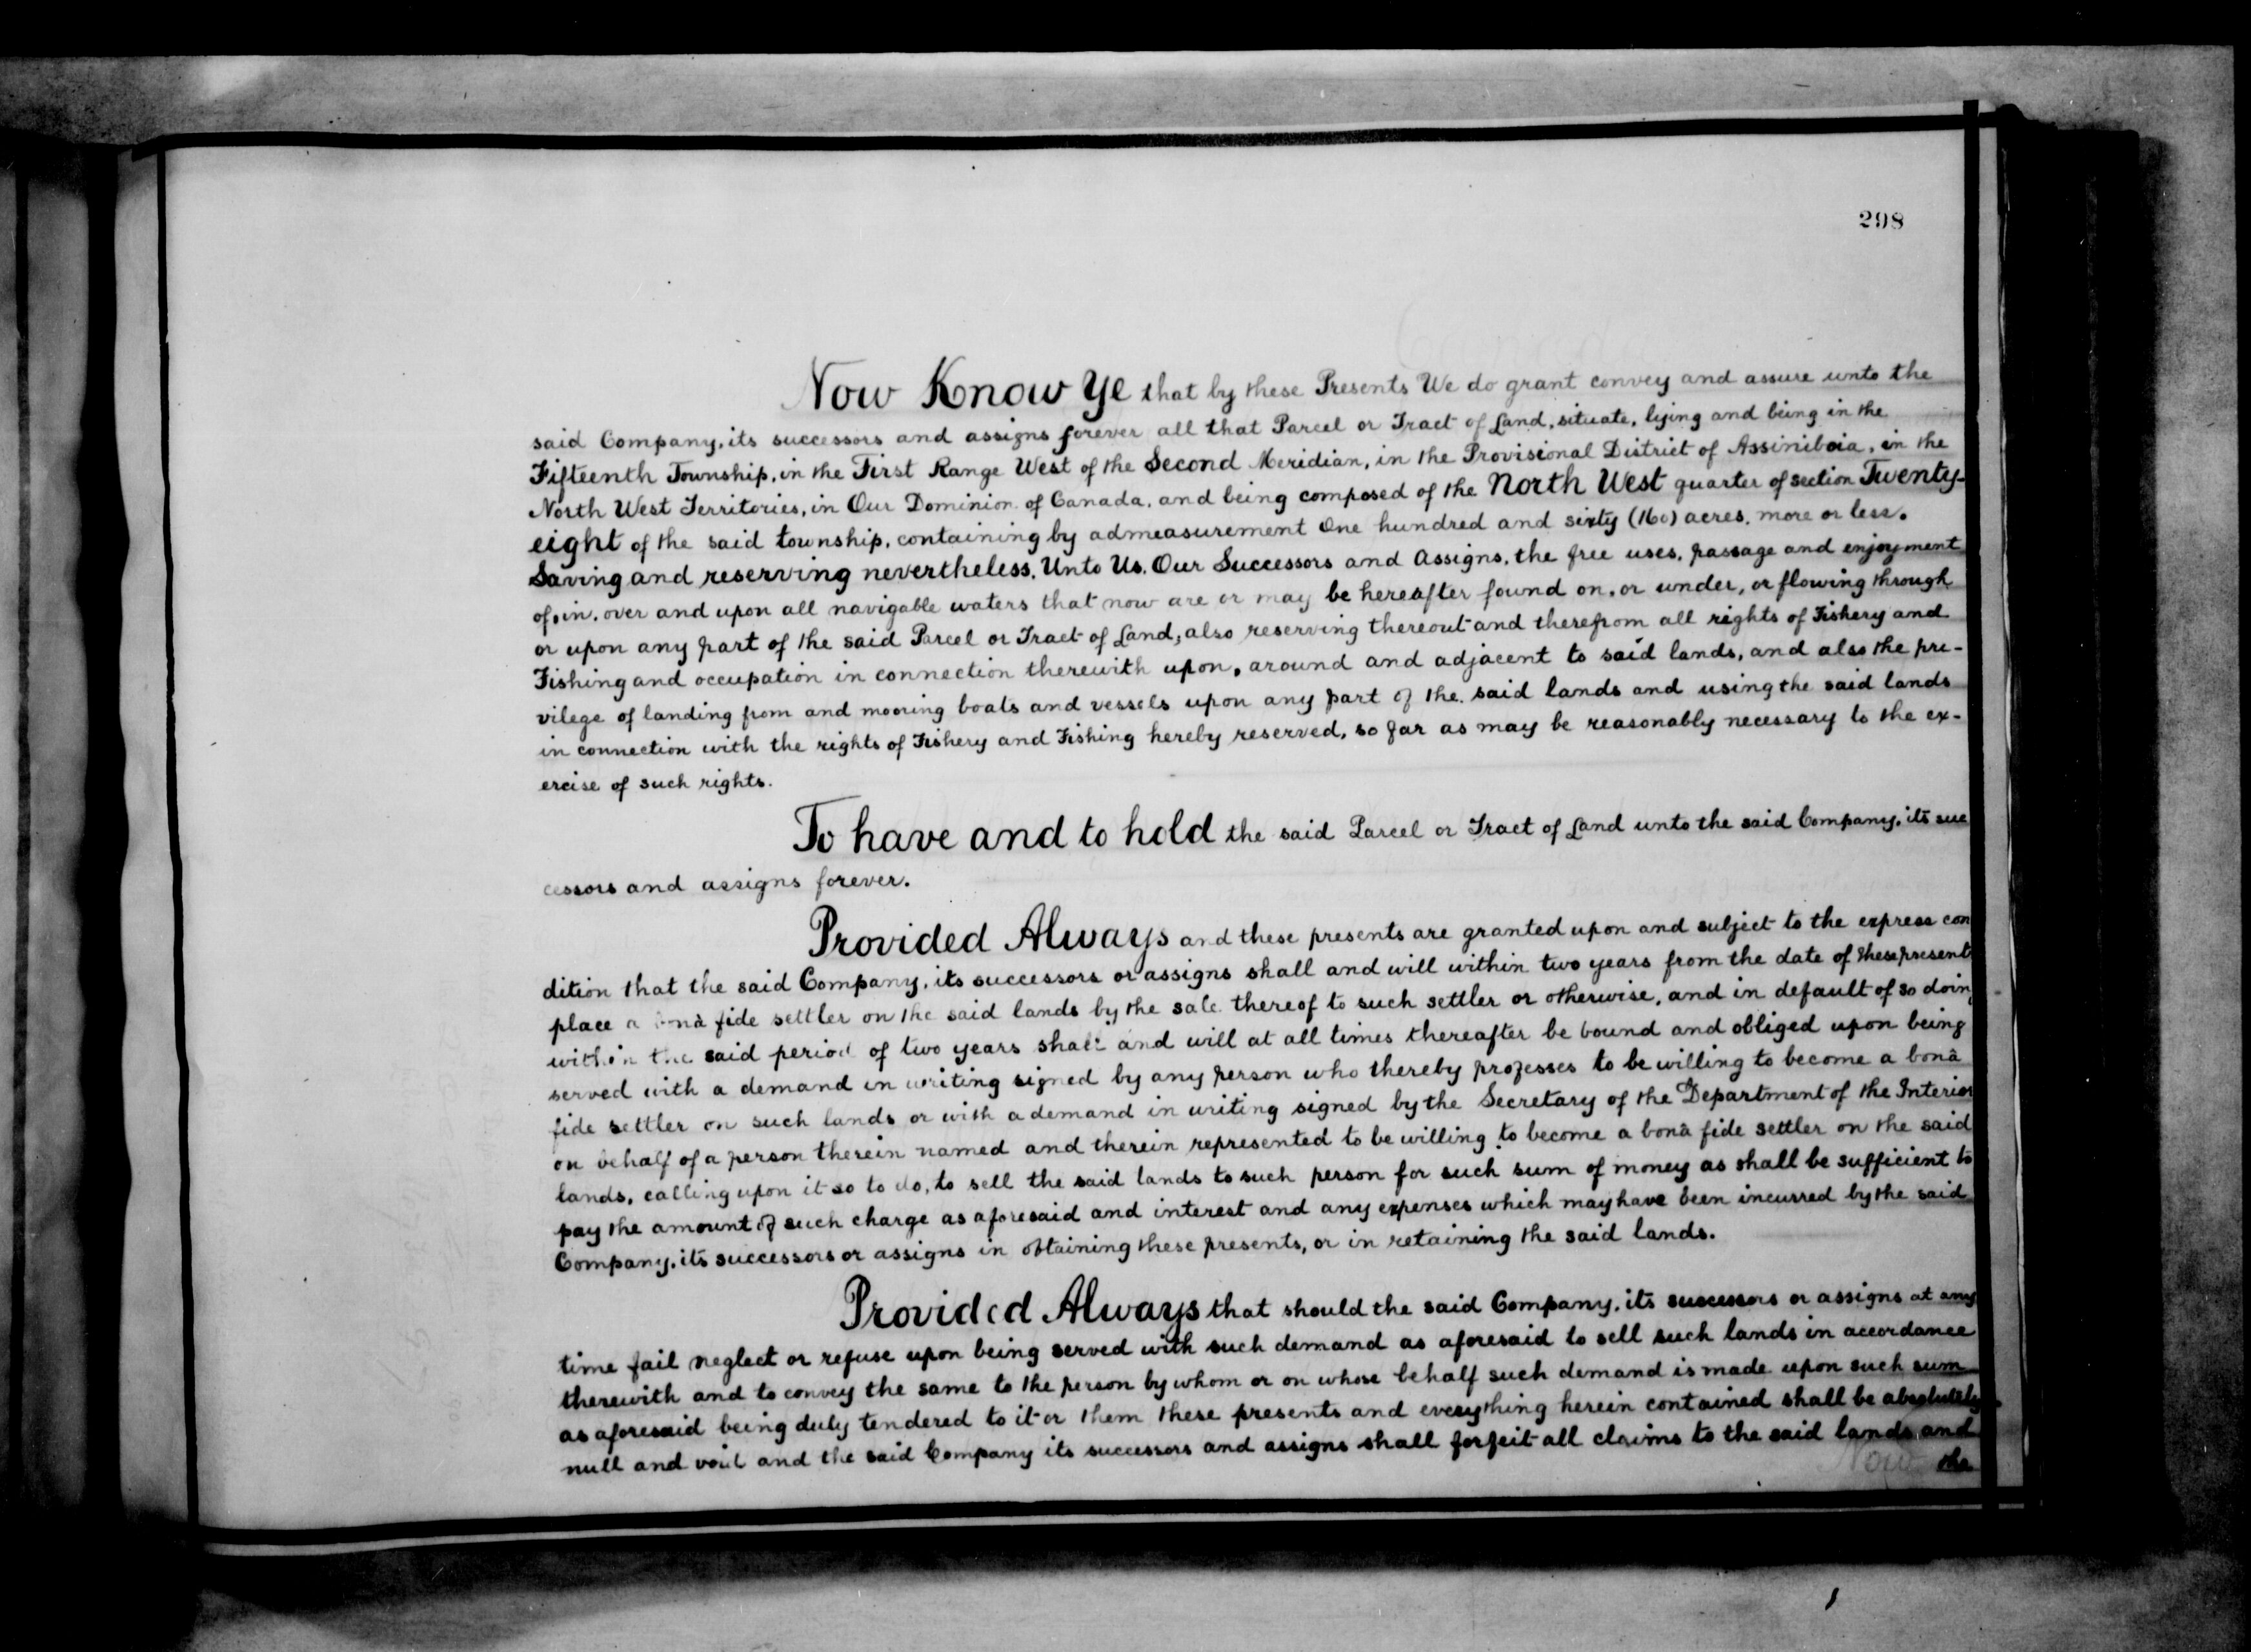 298
Now Know Ye that by these Presents We do grant convey and assure unto the
said Company, its successors and assigns forever all that Parcel or Tract of Land, situate, lying and being in the
Fifteenth Township, in the First Range West of the Second Meridian, in the Provisional District of Assiniboia, in the
North West Territories, in Our Dominion of Canada, and being composed of the North West quarter of section Twenty-
eight of the said township, containing by admeasurement One hundred and sixty (160) acres, more or less.
Saving and reserving nevertheless, Unto Us, Our Successors and Assigns, the free uses, passage and enjoyment
of, in, over and upon all navigable waters that now are or may be hereafter found on, or under, or flowing through
or upon any part of the said Parcel or Tract of Land, also reserving thereout and therefrom all rights of Fishery and
Fishing and occupation in connection therewith upon, around and adjacent to said lands, and also the pri-
vilege of landing from and mooring boats and vessels upon any part of the said lands and using the said lands
in connection with the rights of Fishery and Fishing hereby reserved, so far as may be reasonably necessary to the ex-
ercise of such rights.
To have and to hold the said Parcel or Tract of Land unto the said Company, its suc
cessors and assigns forever.
Provided Always and these presents are granted upon and subject to the express con
dition that the said Company, its successors or assigns shall and will within two years from the date of these presents
place a bonâ fide settler on the said lands by the sale thereof to such settler or otherwise, and in default of so doing
within the said period of two years shall and will at all times thereafter be bound and obliged upon being
served with a demand in writing signed by any person who thereby professes to be willing to become a bonâ
fide settler on such lands or with a demand in writing signed by the Secretary of the Department of the Interior
on behalf of a person therein named and therein represented to be willing to become a bonâ fide settler on the said
lands, calling upon it so to do, to sell the said lands to such person for such sum of money as shall be sufficient to
pay the amount of such charge as aforesaid and interest and any expenses which may have been incurred by the said
Company, its successors or assigns in obtaining these presents, or in retaining the said lands.
Provided Always that should the said Company, its successors or assigns at any
time fail neglect or refuse upon being served with such demand as aforesaid to sell such lands in accordance
therewith and to convey the same to the person by whom or on whose behalf such demand is made upon such sum
as aforesaid being duly tendered to it or them these presents and everything herein contained shall be absolutely
null and void and the said Company its successors and assigns shall forfeit all claims to the said lands and
Now the